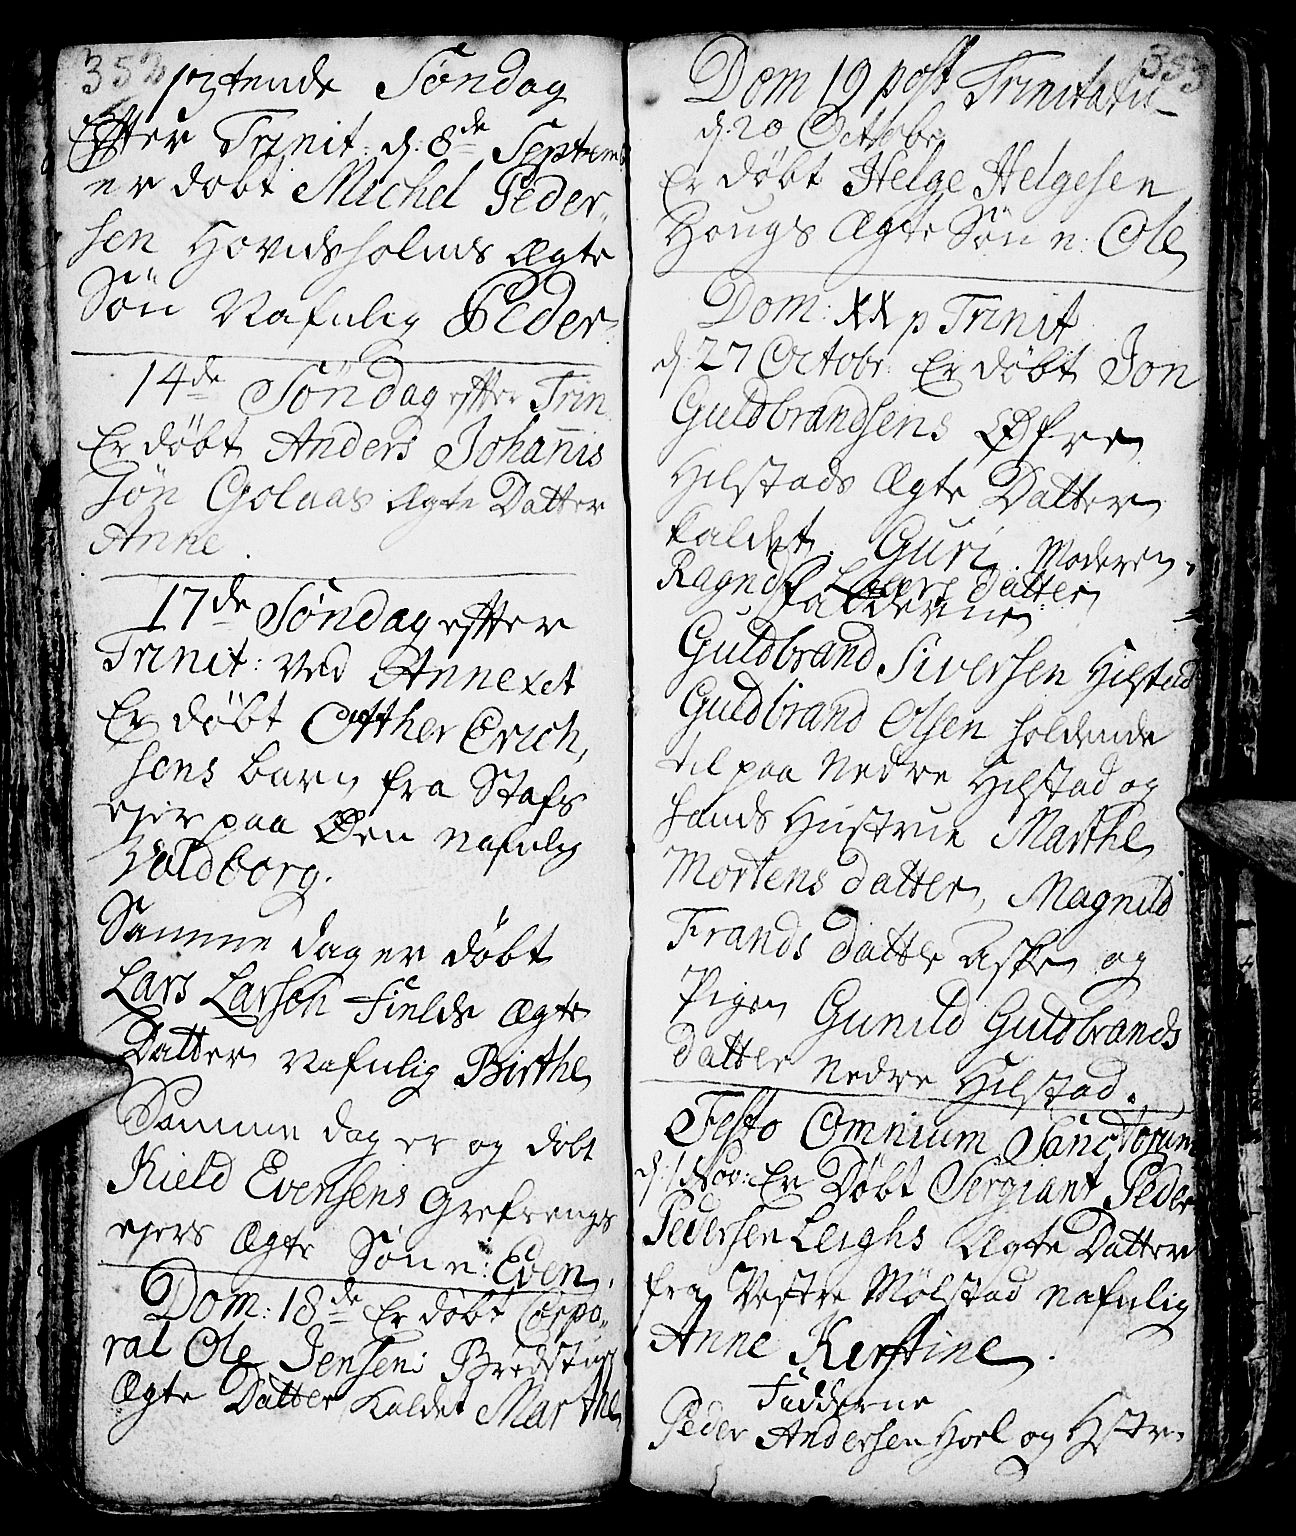 352
13tende Søndag
Efter Trinit: d: 8de Septemb
er døbt Michel Peder-
sen Hovidsholms Ægte
Søn Nafnlig Peder.
14de Søndag efter Trin
Er døbt Anders Johannis
søn Golaas Ægte Datter
Anne.
17de Søndag efter
Trinit: ved Annexet
Er døbt Otther Erich,
sens barn fra Stafs
ejer paa Øen nafnlig
Valdborg.
Samme dag er døbt
Lars Larsøn Fields Ægte
Datter Nafnlig Birthe
Samme dag er og døbt
Kield Evensens Grefrengs
ejers Ægte Søn n: Even.
Dom: 18de Er døbt Corpo-
ral Ole Jensens Bredstug
Ægte Datter kaldet Marthe
353
Dom 19 post Trinitatis
d: 20 Octobr
Er døbt Helge Helgesen
Hougs Ægte Søn n: Ole
Dom: XX p Trinit
d: 27 Octobr: Er døbt Jon
Guldbrandsens Øfre
Hilstads Ægte Datter
kaldet. Guri. Moderen.
Ragnd Lars datter
Fadderne
Guldbrand Siversen Hilstad
Guldbrand Olsen holdende
til paa Nedre Hilstad og
hands Hustrue Marthe
Mortens datter, Magnild
Frands datter Aske og
Pigen Gunild Guldbrands
datter Nedre Hilstad.
Festo Omnium Sanctorum
d: 1 Nov: Er Døbt Sergiant Peder
Pedersen Leighs Ægte Datter
fra Vestre Mølstad nafnlig
Anne Kerstine.
Fadderne
Peder Andersen Hoel og Hstr.